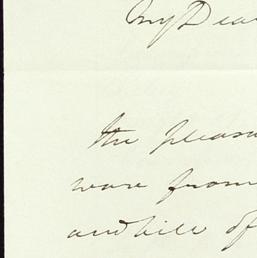 My Dear
the pleasu
ware from
and bill of